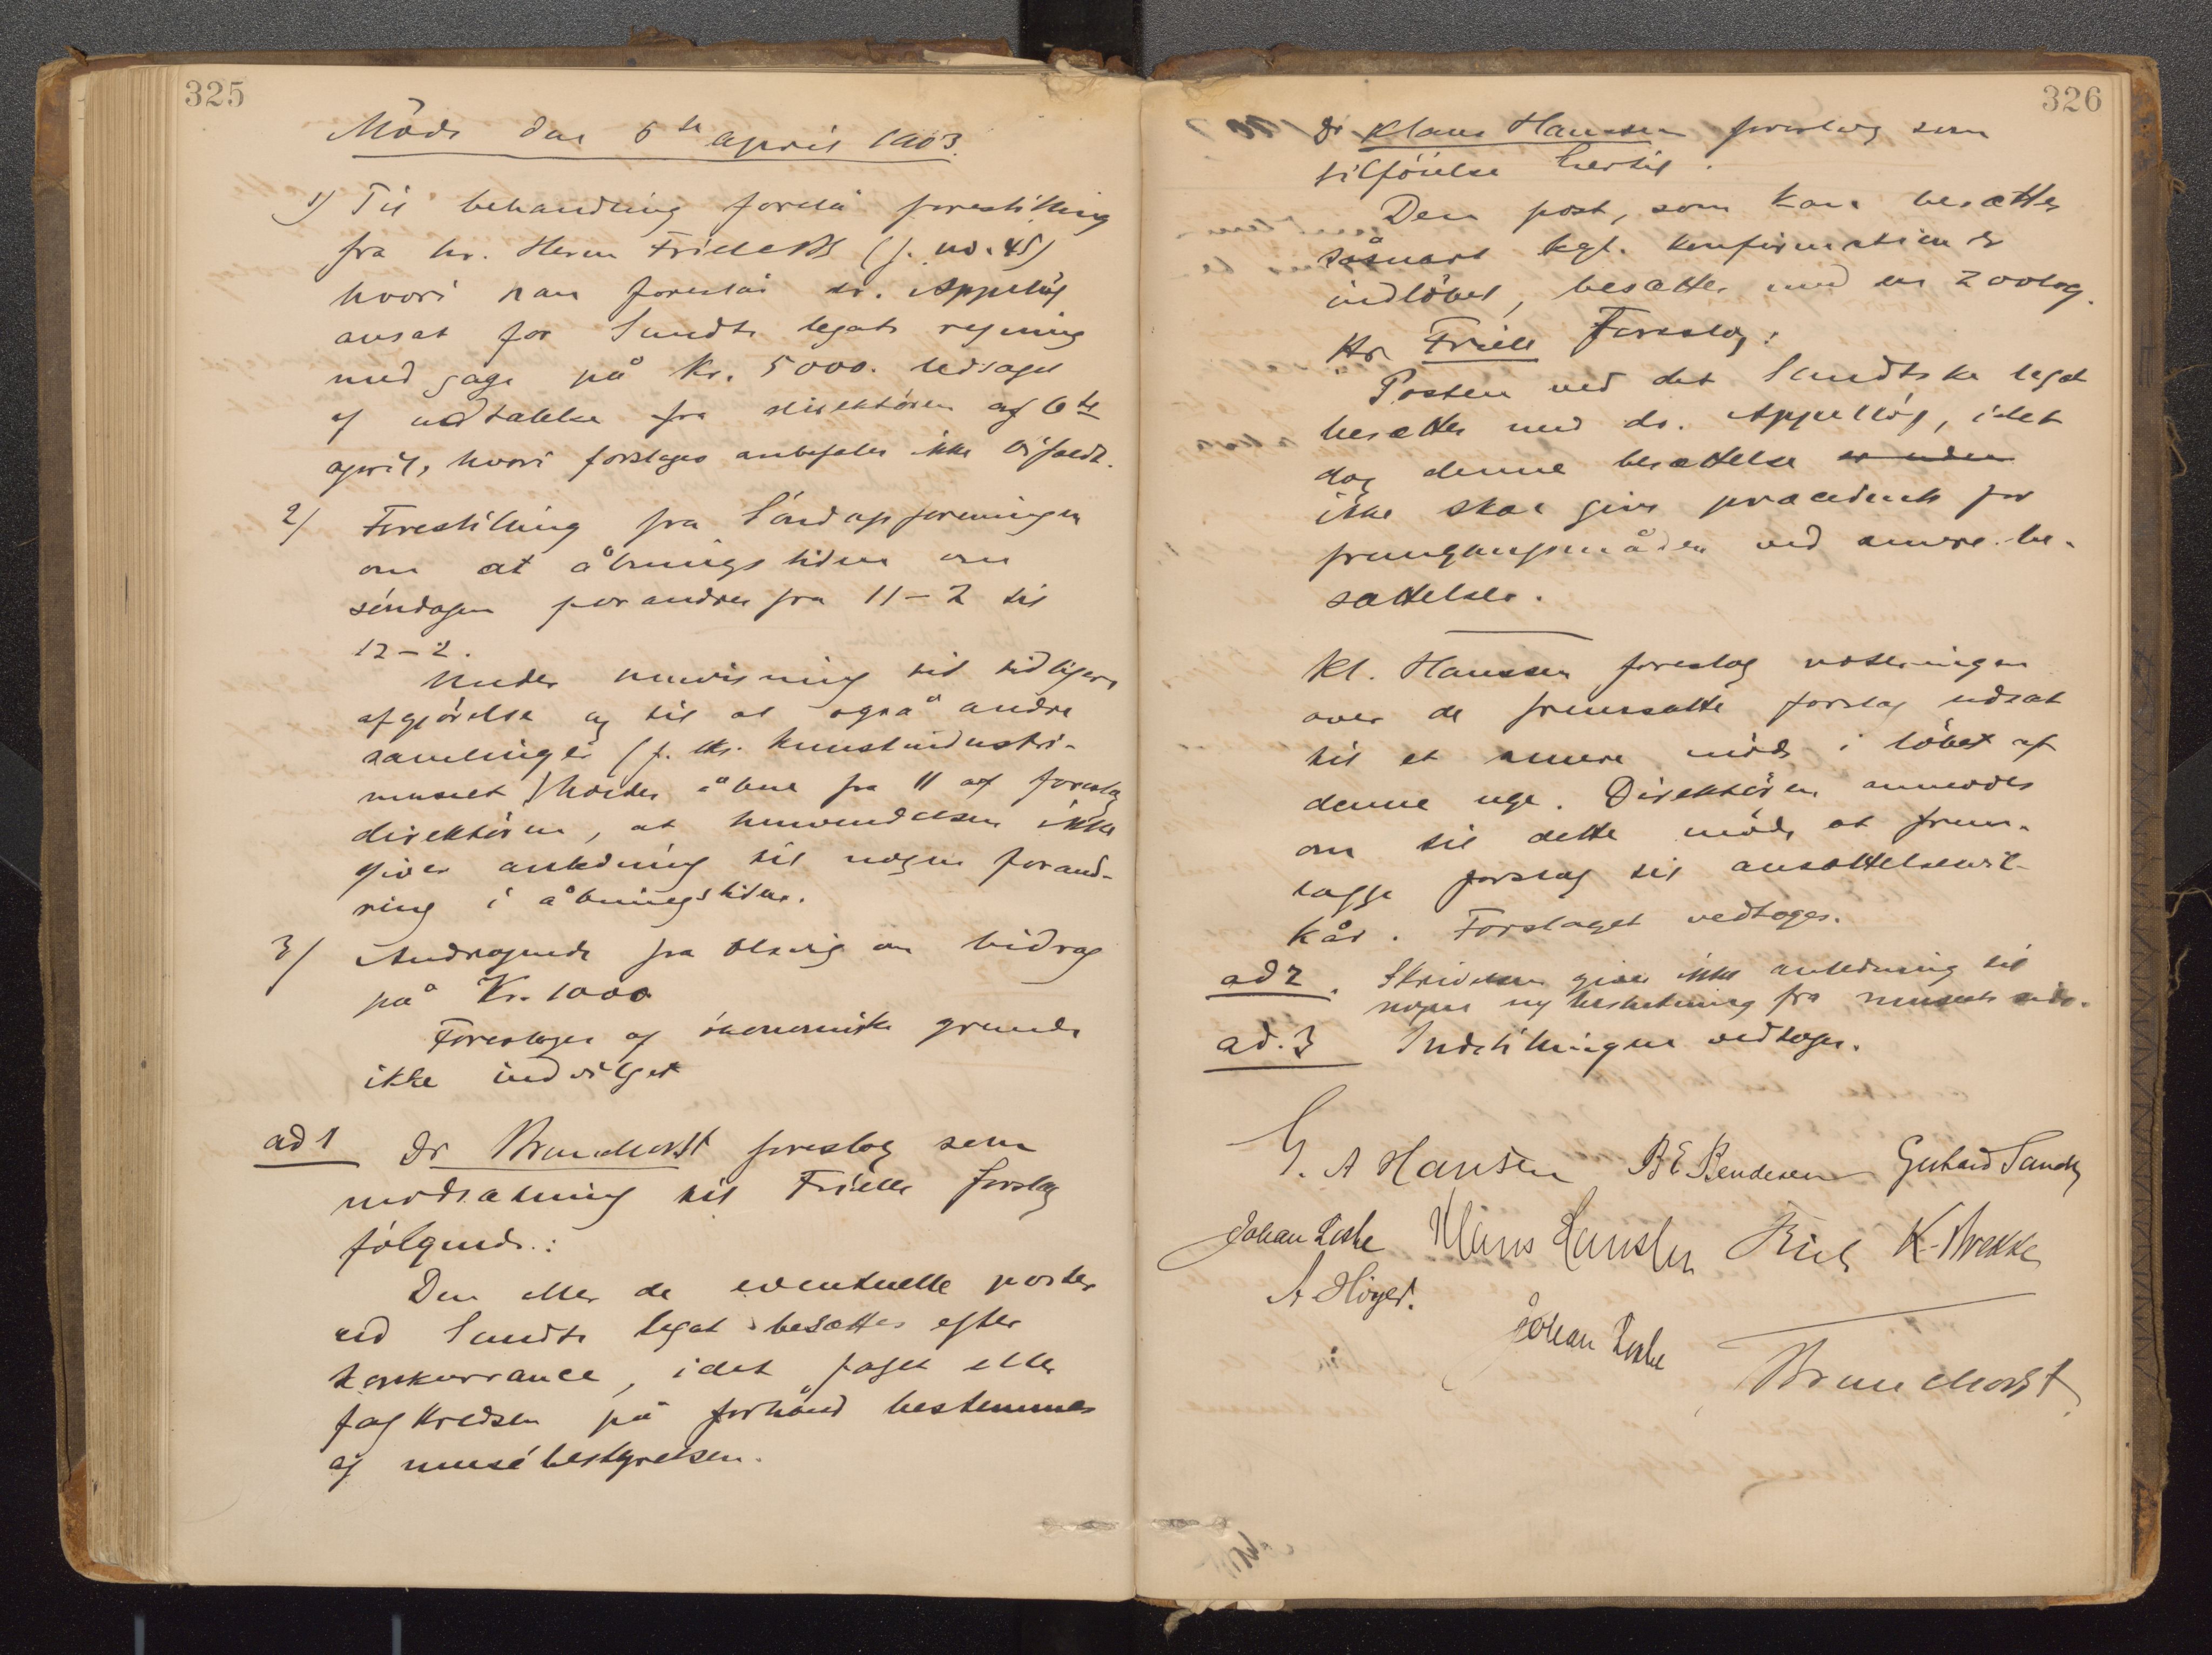 325
Møde den 6te april 1903.
1) Til behandling forelå forestilling
fra hr. Herm Friele (j. no. 45)
hvori han foreslår dr. Appellöf
ansat for Sundts legats regning
med gage på kr. 5000. ledsaget
af udtalelse fra direktøren af 6te
april, hvori forslaget anbefales ikke bifaldt.
2) Forestilling fra Søndagsforeningen
om at åbningstiden om
søndagen forandres fra 11-2 til
12-2.
Under henvisning til tidligere
afgjørelse og til at også andre
samlinger (f. eks. kunstindustri-
museet) holdes åbne fra 11 af foreslog
direktøren, at henvendelsen ikke
giver anledning til nogen forand-
ring i åbningstiden.
3) Andragende fra Olsvig om bidrag
på Kr. 1000
Foreslages af økonomiske grunde
ikke indvilget
ad 1 Dr Brunchorst foreslog som
modsætning til Frieles forslag
følgende:
Den eller de eventuelle poster
ved Sundts legat besættes efter
konkurrance, idet faget eller
fagkredsen på forhånd bestemmes
af musébestyrelsen.
326
Dr Klaus Hanssen foreslog som
tilføielse hertil:
Den post, som kan besættes
såsnart kgl. konfirmation er
indløbet, besættes med en zoolog.
Hr. Friele Foreslog:
Posten ved det Sundtske legat
besættes med dr. Appellöf, idet
dog denne besættelse er uden
ikke skal give præcedents for
fremgangsmåden ved senere be-
sættelser.
Kl. Hanssen foreslog voteringen
over de fremsatte forslag udsat
til et senere møde i løbet af
denne uge. Direktøren anmodes
om til dette møde at frem-
lægge forslag til ansættelsesvil-
kår. Forslaget vedtoges.
ad 2. Skrivelsen giver ikke anledning til
nogen ny beslutning fra museets side.
ad. 3 Indstillingen vedtoges.
G. A Hansen B E Bendixen Gerhard Sundt
Johan Lothe Klaus Hanssen Friele K. Brekke
A Høyer.
Johan Lothe
Brunchorst